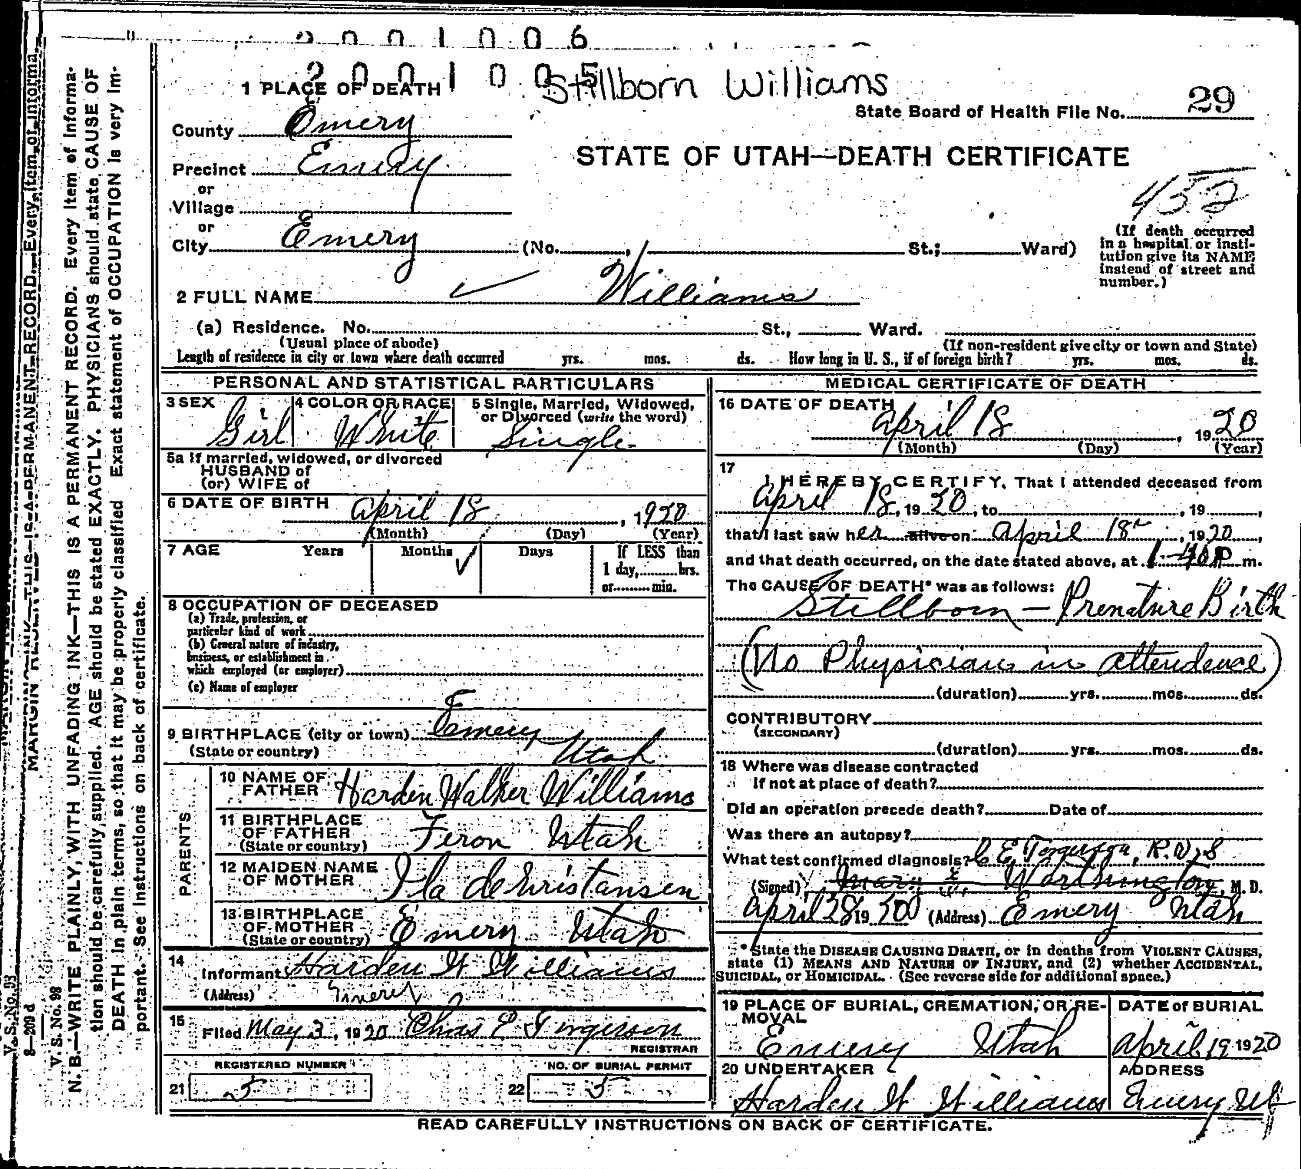 2001006
2001005
Stillborn Williams
1 PLACE OF DEATH
State Board of Health File No. 29
County Emery
STATE OF UTAH—DEATH CERTIFICATE
Precinct Emery
or
Village
or
City Emery (No. , St.; Ward)
452
(If death occurred in a hospital or institution give its NAME instead of street and number.)
2 FULL NAME Williams
(a) Residence. No. St., Ward.
(Usual place of abode) (If non-resident give city or town and State)
Length of residence in city or town where death occurred yrs. mos. ds. How long in U. S., if of foreign birth? yrs. mos. ds.
PERSONAL AND STATISTICAL PARTICULARS
3 SEX Girl
4 COLOR OR RACE White
5 Single, Married, Widowed, or Divorced (write the word) Single
5a If married, widowed, or divorced
HUSBAND of
(or) WIFE of
6 DATE OF BIRTH April 18, 1920
(Month) (Day) (Year)
7 AGE Years Months Days If LESS than
1 day, hrs.
or min.
8 OCCUPATION OF DECEASED
(a) Trade, profession, or
particular kind of work
(b) General nature of industry,
business, or establishment in
which employed (or employer)
(c) Name of employer
9 BIRTHPLACE (city or town) Emery
(State or country) Utah
PARENTS
10 NAME OF FATHER Harden Walker Williams
11 BIRTHPLACE OF FATHER (State or country) Feron Utah
12 MAIDEN NAME OF MOTHER Ila
13 BIRTHPLACE OF MOTHER (State or country) Emery Utah
14 Informant Harden W Williams
(Address) Emery
15 Filed May 3, 1920 Chas E Fergerson
REGISTRAR
REGISTERED NUMBER
21 5
NO. OF BURIAL PERMIT
22 5
MEDICAL CERTIFICATE OF DEATH
16 DATE OF DEATH April 18, 1920
(Month) (Day) (Year)
17 I HEREBY CERTIFY, That I attended deceased from
April 18, 1920, to , 19 ,
that I last saw her alive on April 18, 1920,
and that death occurred, on the date stated above, at 1-40 P m.
The CAUSE OF DEATH* was as follows:
Stillborn — Prenature Birth
(No Physician in attendence)
(duration) yrs. mos. ds.
CONTRIBUTORY
(SECONDARY)
(duration) yrs. mos. ds.
18 Where was disease contracted
If not at place of death?
Did an operation precede death? Date of
Was there an autopsy?
What test confirmed diagnosis? C. E. Fergerson, R.V.S
(Signed) Mary E. Worthington, M. D.
April 28 1920 (Address) Emery Utah
* State the DISEASE CAUSING DEATH, or in deaths from VIOLENT CAUSES,
state (1) MEANS AND NATURE OF INJURY, and (2) whether ACCIDENTAL,
SUICIDAL, or HOMICIDAL. (See reverse side for additional space.)
19 PLACE OF BURIAL, CREMATION, OR REMOVAL
Emery Utah
DATE of BURIAL
April 19 1920
20 UNDERTAKER
Harden W Williams
ADDRESS
Emery Ut
READ CAREFULLY INSTRUCTIONS ON BACK OF CERTIFICATE.
MARGIN RESERVED
V. S. No. 98
N. B.—WRITE PLAINLY, WITH UNFADING INK—THIS IS A PERMANENT RECORD. Every item of informa-
tion should be carefully supplied. AGE should be stated EXACTLY. PHYSICIANS should state CAUSE OF
DEATH in plain terms, so that it may be properly classified. Exact statement of OCCUPATION is very im-
portant. See instructions on back of certificate.